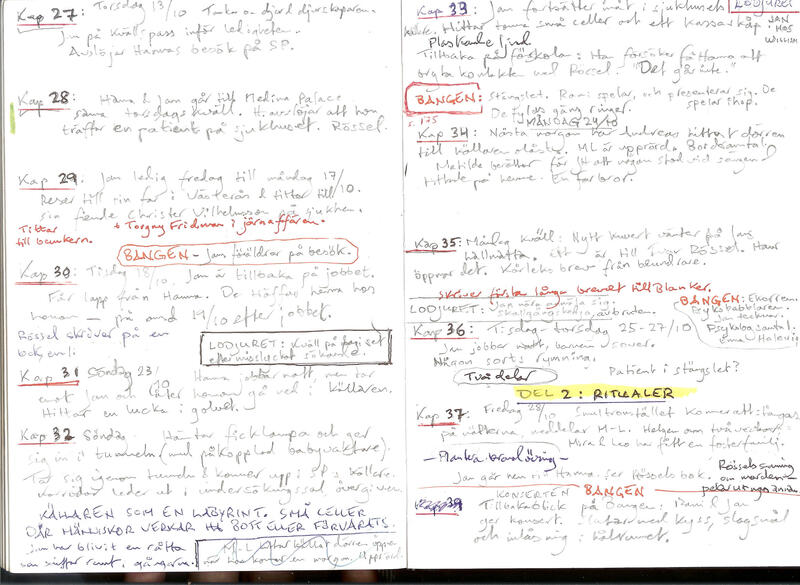 Kap 27: Torsdag 13/10
Jan på kvällspass inför ledigheten.
Avslöjar Hannas besök på SP.
Kap 28: Hanna & Jan går till Medina Palace
samma torsdagskväll. H avslöjar att hon
träffar en patient på sjukhuset. Rössel.
Kap 29: Jan ledig fredag till måndag 17/10.
Reser till sin far i Västerås & tittar till
sin fiende Christer Vilhelmsson på sjukhem.
Tittar + Torgny Fridman i järnaffären.
till bunkern.
BANGEN - Jans föräldrar på besök.
Kap 30: Tisdag 18/10. Jan är tillbaka på jobbet.
Får lapp från Hanna. De träffas hemma hos
honom — på 19/10 efter jobbet.
Rössel skriver på en
bok, en:
LODJURET: Kväll på
efter misslyckat sökande.
Kap 31 Söndag 23/10 Hanna jobbar natt, men tar
emot Jan och låter honom gå ned i källaren.
Hittar en lucka i golvet.
Kap 32 Söndag. Hämtar ficklampa och ger
sig in i tunneln (med påkopplad babyvaktare).
Tar sig igenom tunneln & kommer upp i SP:s källare.
Korridor leder ut i undersökningssal övergiven.
KÄLLAREN SOM EN LABYRINT. SMÅ CELLER
DÄR MÄNNISKOR VERKAR HA BOTT ELLER FÖRVARATS.
Jan har blivit en råtta
som sniffar runt, gångarna.
M-L hittar källardörren öppen
Kap 33: Jan fortsätter inåt i sjukhusets
källare. Hittar tomma små celler och ett kassaskåp.
LODJURET
JAN HOS WILLIAM
Plaskande ljud.
Tillbaka på förskolan: Han försöker få Hanna att
avsluta kontakten med Rössel. "Det går inte."
BANGEN: Stängslet. Rami spelar, och presenterar sig. De
De låss gång ringer. spelar ihop.
s. 175
MÅNDAG 24/10
Kap 34: Nästa morgon har Andreas hittat dörren
till källaren olåst. ML är upprörd. Bordsamtal.
Matilde berättar för M att någon stod vid sängen &
tittade på henne. En farbror.
Kap 35: Måndag kväll: Nytt kuvert väntar på Jan
i källnatta. Ett är till Ivan Rössel. Hans
öppnar det. Kärleksbrev från beundrare.
skriver första långa brevet till Blanker.
LODJURET: Jan nära avslöja sig.
Skogsgångskedja, avbruten.
BANGEN: Ekorren.
Psykobabblaren.
Jan tecknar.
Psykologsamtal.
Emma Halevi
Kap 36: Tisdag - torsdag 25-27/10
Jan jobbar natt, barnen sover.
Någon sorts rymning.
Patient i stängslet?
Två delar
DEL 2: RITUALER
Kap 37: Fredag 28/10 Smultronstället kommer att stängas
på nätterna, meddelar M-L. Helgen om två veckor.
Mira & Leo har fått en fosterfamilj.
— Planera brandövning —
Jan går hem till Hanna. Ser Rössels bok.
Rössels aning
om morden –
pekar ut ngn annan.
KONSERTEN BANGEN
Kap 38 Tillbakablick på Bangen: Rami & Jan
ger konsert. Slutar med kyss, slagsmål
och inlåsning i hålrummet.